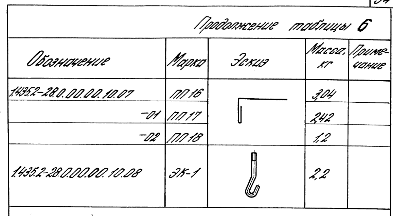 Продолжение таблицы 6
Обозначение Марка Эскиз Масса, кг Примечание
1.435.2-28.0.00.00.10.07 ПП16 3,04
-01 ПП17 2,42
-02 ПП18 1,2
1.435.2-28.0.00.00.10.08 ЭК-1 2,2